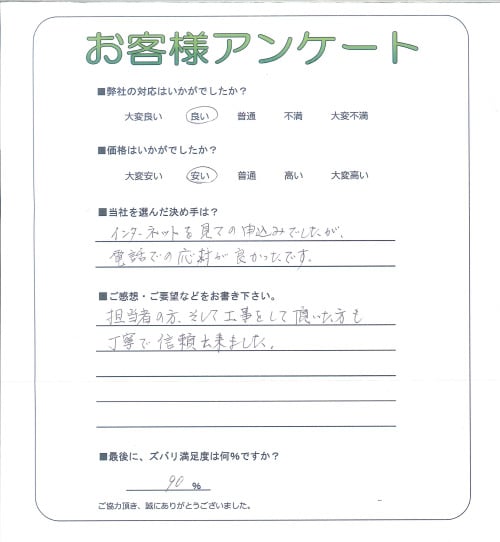 お客様アンケート
■弊社の対応はいかがでしたか?
大変良い 良い 普通 不満 大変不満
■価格はいかがでしたか?
大変安い 安い 普通 高い 大変高い
■当社を選んだ決め手は?
インターネットを見ての申込みでしたが、
電話での応対が良かったです。
■ご感想・ご要望などをお書き下さい。
担当者の方、そして工事をして頂いた方も
丁寧で信頼出来ました。
■最後に、ズバリ満足度は何%ですか?
90 %
ご協力頂き、誠にありがとうございました。